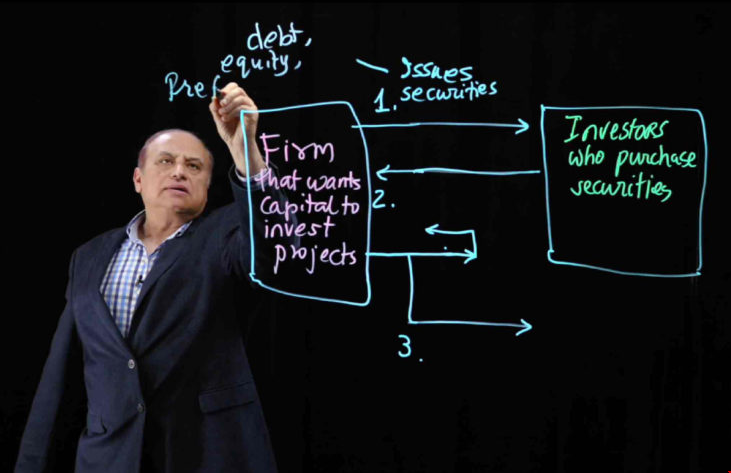 debt,
equity,
Pref
Issues
1. securities
Firm
that wants
Capital to
invest
projects
2.
3.
Investors
who purchase
securities